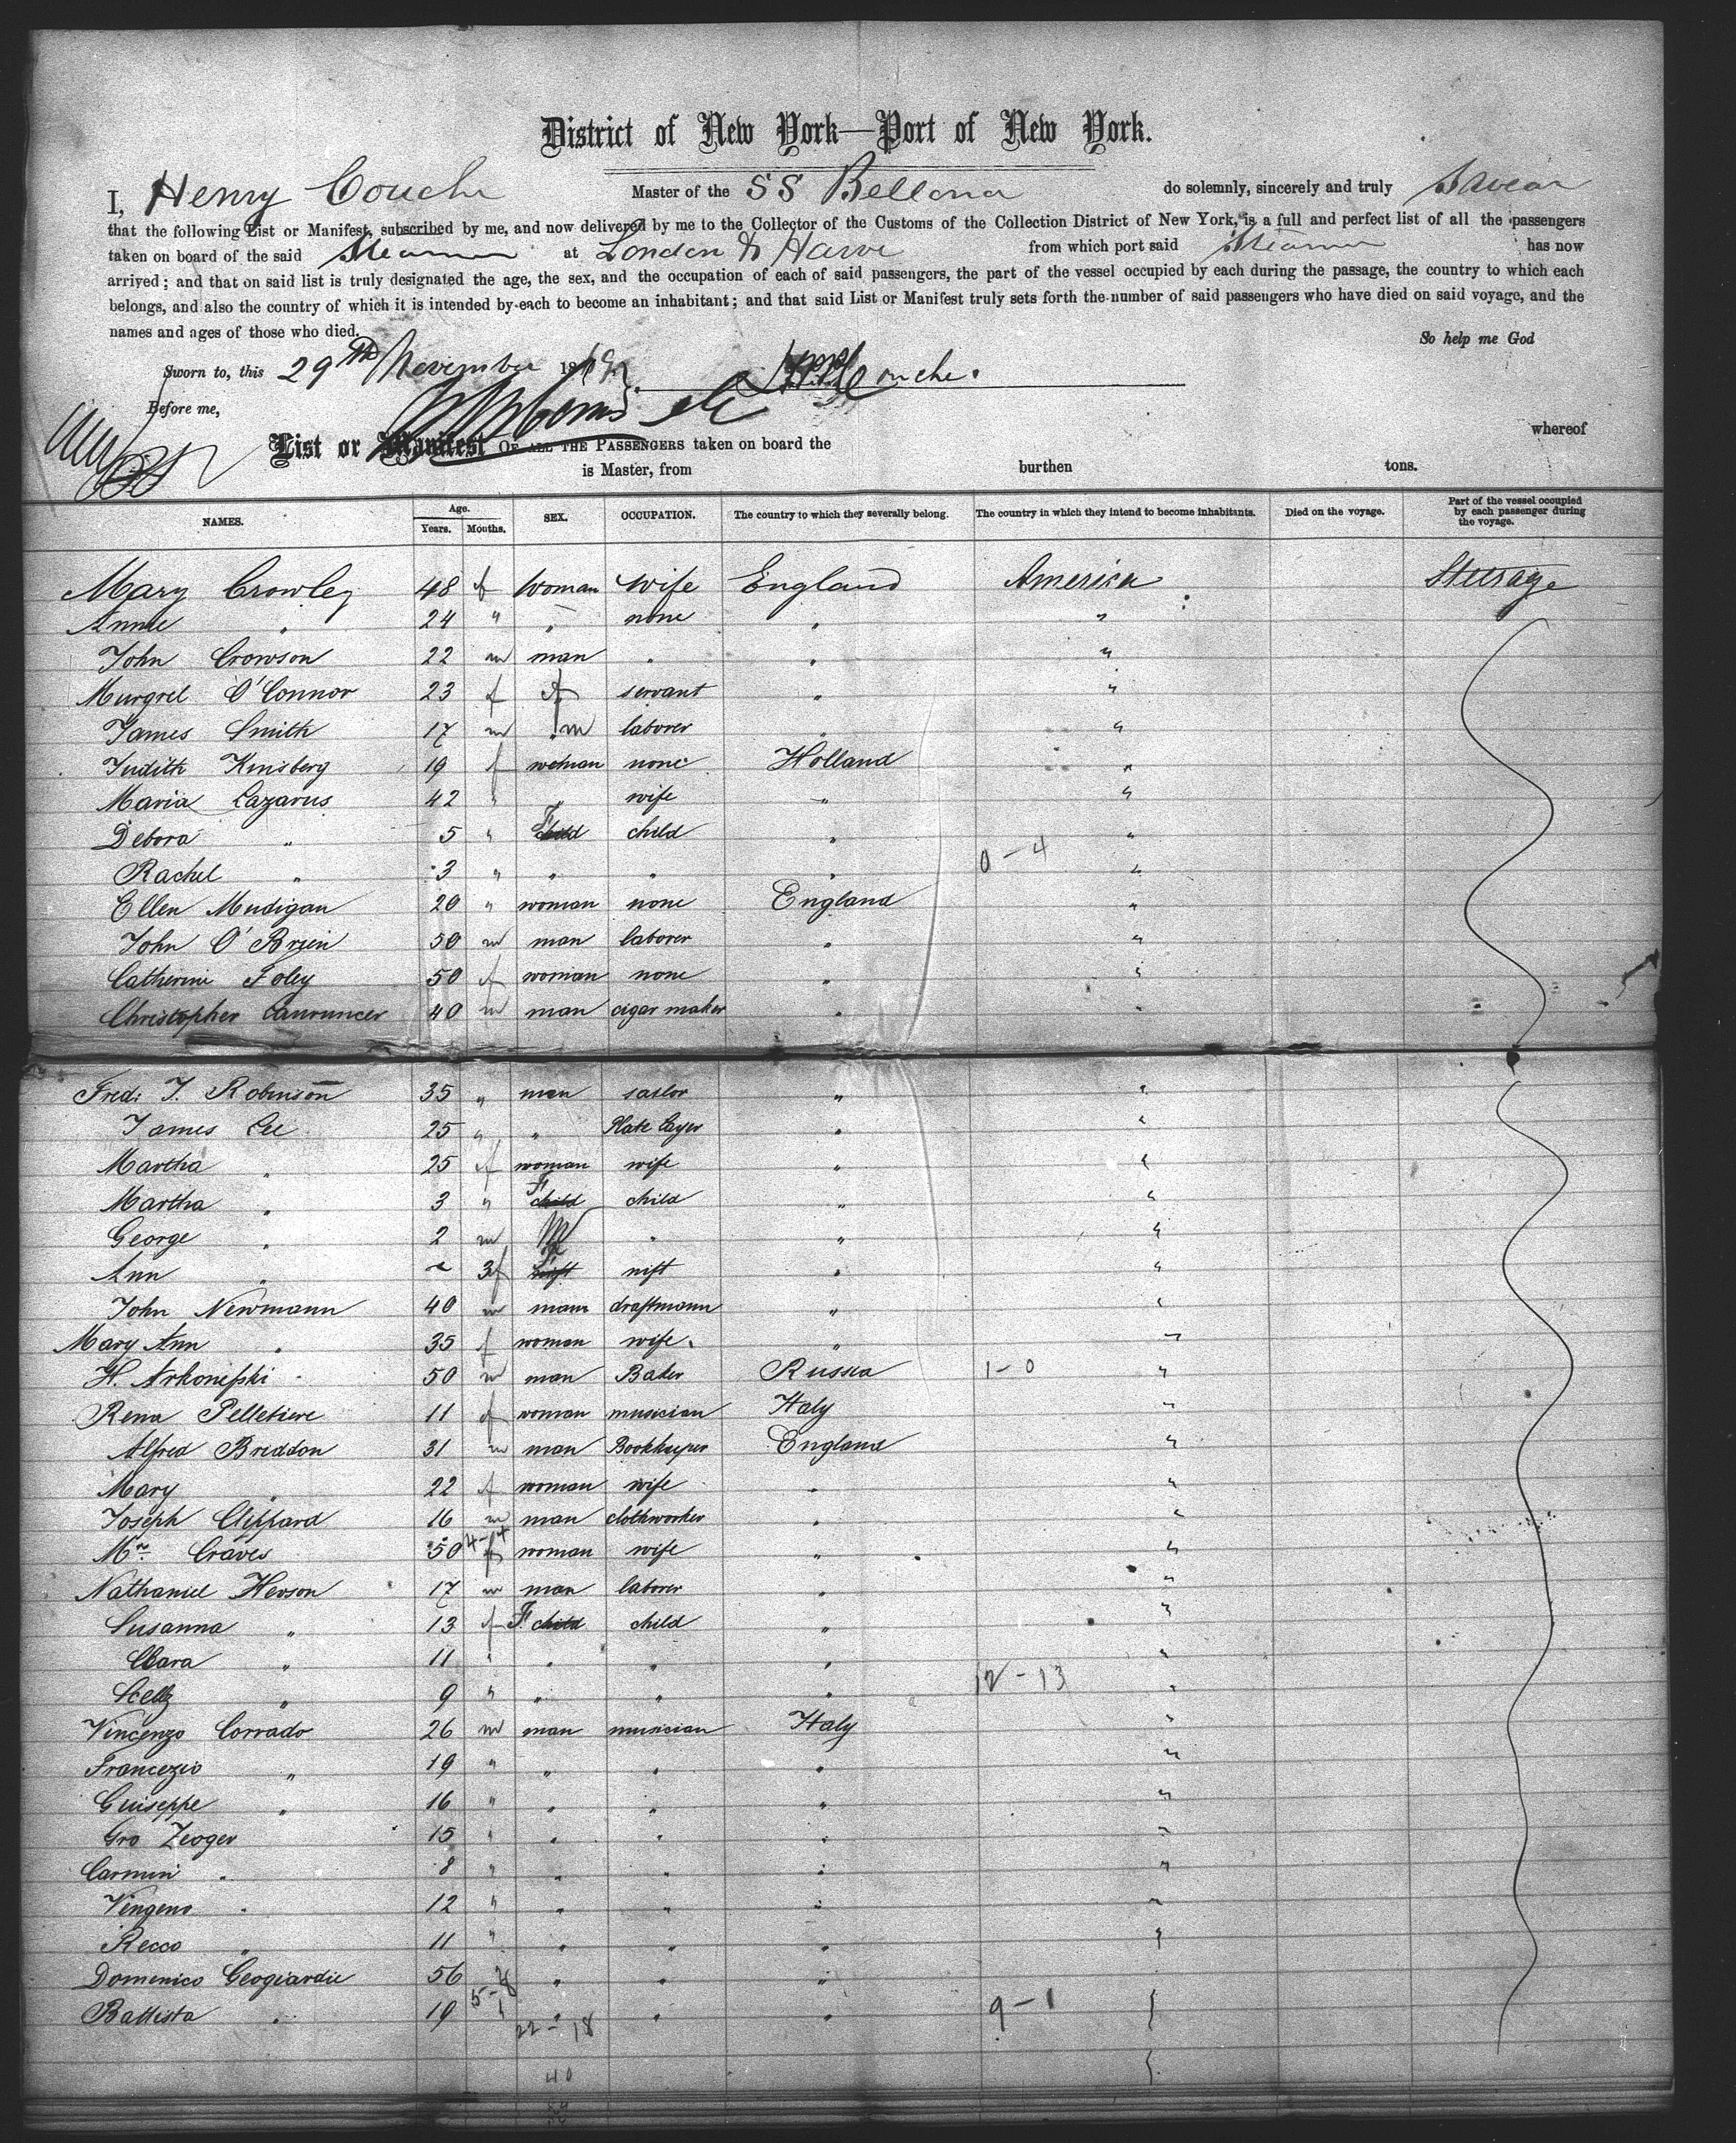 District of New York—Port of New York.
I, Henry Couche Master of the SS Bellona do solemnly, sincerely and truly Swear
that the following List or Manifest, subscribed by me, and now delivered by me to the Collector of the Customs of the Collection District of New York, is a full and perfect list of all the passengers
taken on board of the said Steamer at London & Havre from which port said Steamer has now
arrived; and that on said list is truly designated the age, the sex, and the occupation of each of said passengers, the part of the vessel occupied by each during the passage, the country to which each
belongs, and also the country of which it is intended by each to become an inhabitant; and that said List or Manifest truly sets forth the number of said passengers who have died on said voyage, and the
names and ages of those who died. So help me God
Sworn to, this 29th November 18 Couche.
Before me,
List or Manifest OF ALL THE PASSENGERS taken on board the whereof
is Master, from burthen tons.
NAMES. Age. Years. Months. SEX. OCCUPATION. The country to which they severally belong. The country in which they intend to become inhabitants. Died on the voyage. Part of the vessel occupied by each passenger during the voyage.
Mary Crowley 48 f Woman Wife England America Steerage
Annie " 24 " " none " "
John Crowson 22 m man " " "
Murgret O'Connor 23 f f servant " "
James Smith 17 m m laborer " "
Judith Kinsberg 19 f woman none Holland "
Maria Lazarus 42 " " wife " "
Debora " 5 " F child child " "
Rachel " 3 " " " " 0-4 "
Ellen Mudigan 20 " woman none England "
John O'Brien 50 m man laborer " "
Catherine Foley 50 f woman none " "
Christopher 40 m man cigar maker " "
Fred. J. Robinson 35 " man sailor " "
James Lee 25 " " Plate Layer " "
Martha " 25 f woman wife " "
Martha " 3 " F child child " "
George " 2 m M " " "
Ann " 3 f " "
John Newmann 40 m man draftmann " "
Mary Ann " 35 f woman wife " "
H. Arkonefski 50 m man Baker Russia 1-0 "
Rena Pelletiere 11 f woman musician Italy "
Alfred Briddon 31 m man Bookkeeper England "
Mary " 22 f woman wife " "
Joseph Clippard 16 m man clothworker " "
Mrs. Craves 50 f woman wife " "
Nathaniel Hewson 17 m man laborer " "
Susanna " 13 f F child child " "
Clara " 11 " " " " "
9 " " " " 12-13 "
Vincenzo Corrado 26 m man musician Italy "
Francezio " 19 " " " " "
Guiseppe " 16 " " " " "
Gro Zeoger 15 " " " " "
Carmin " 8 " " " " "
Vingeno " 12 " " " " "
Recco " 11 " " " " "
Domenico Geogiardie 56 " " "
Battista " 19 " " " " 9-1
22-18
40